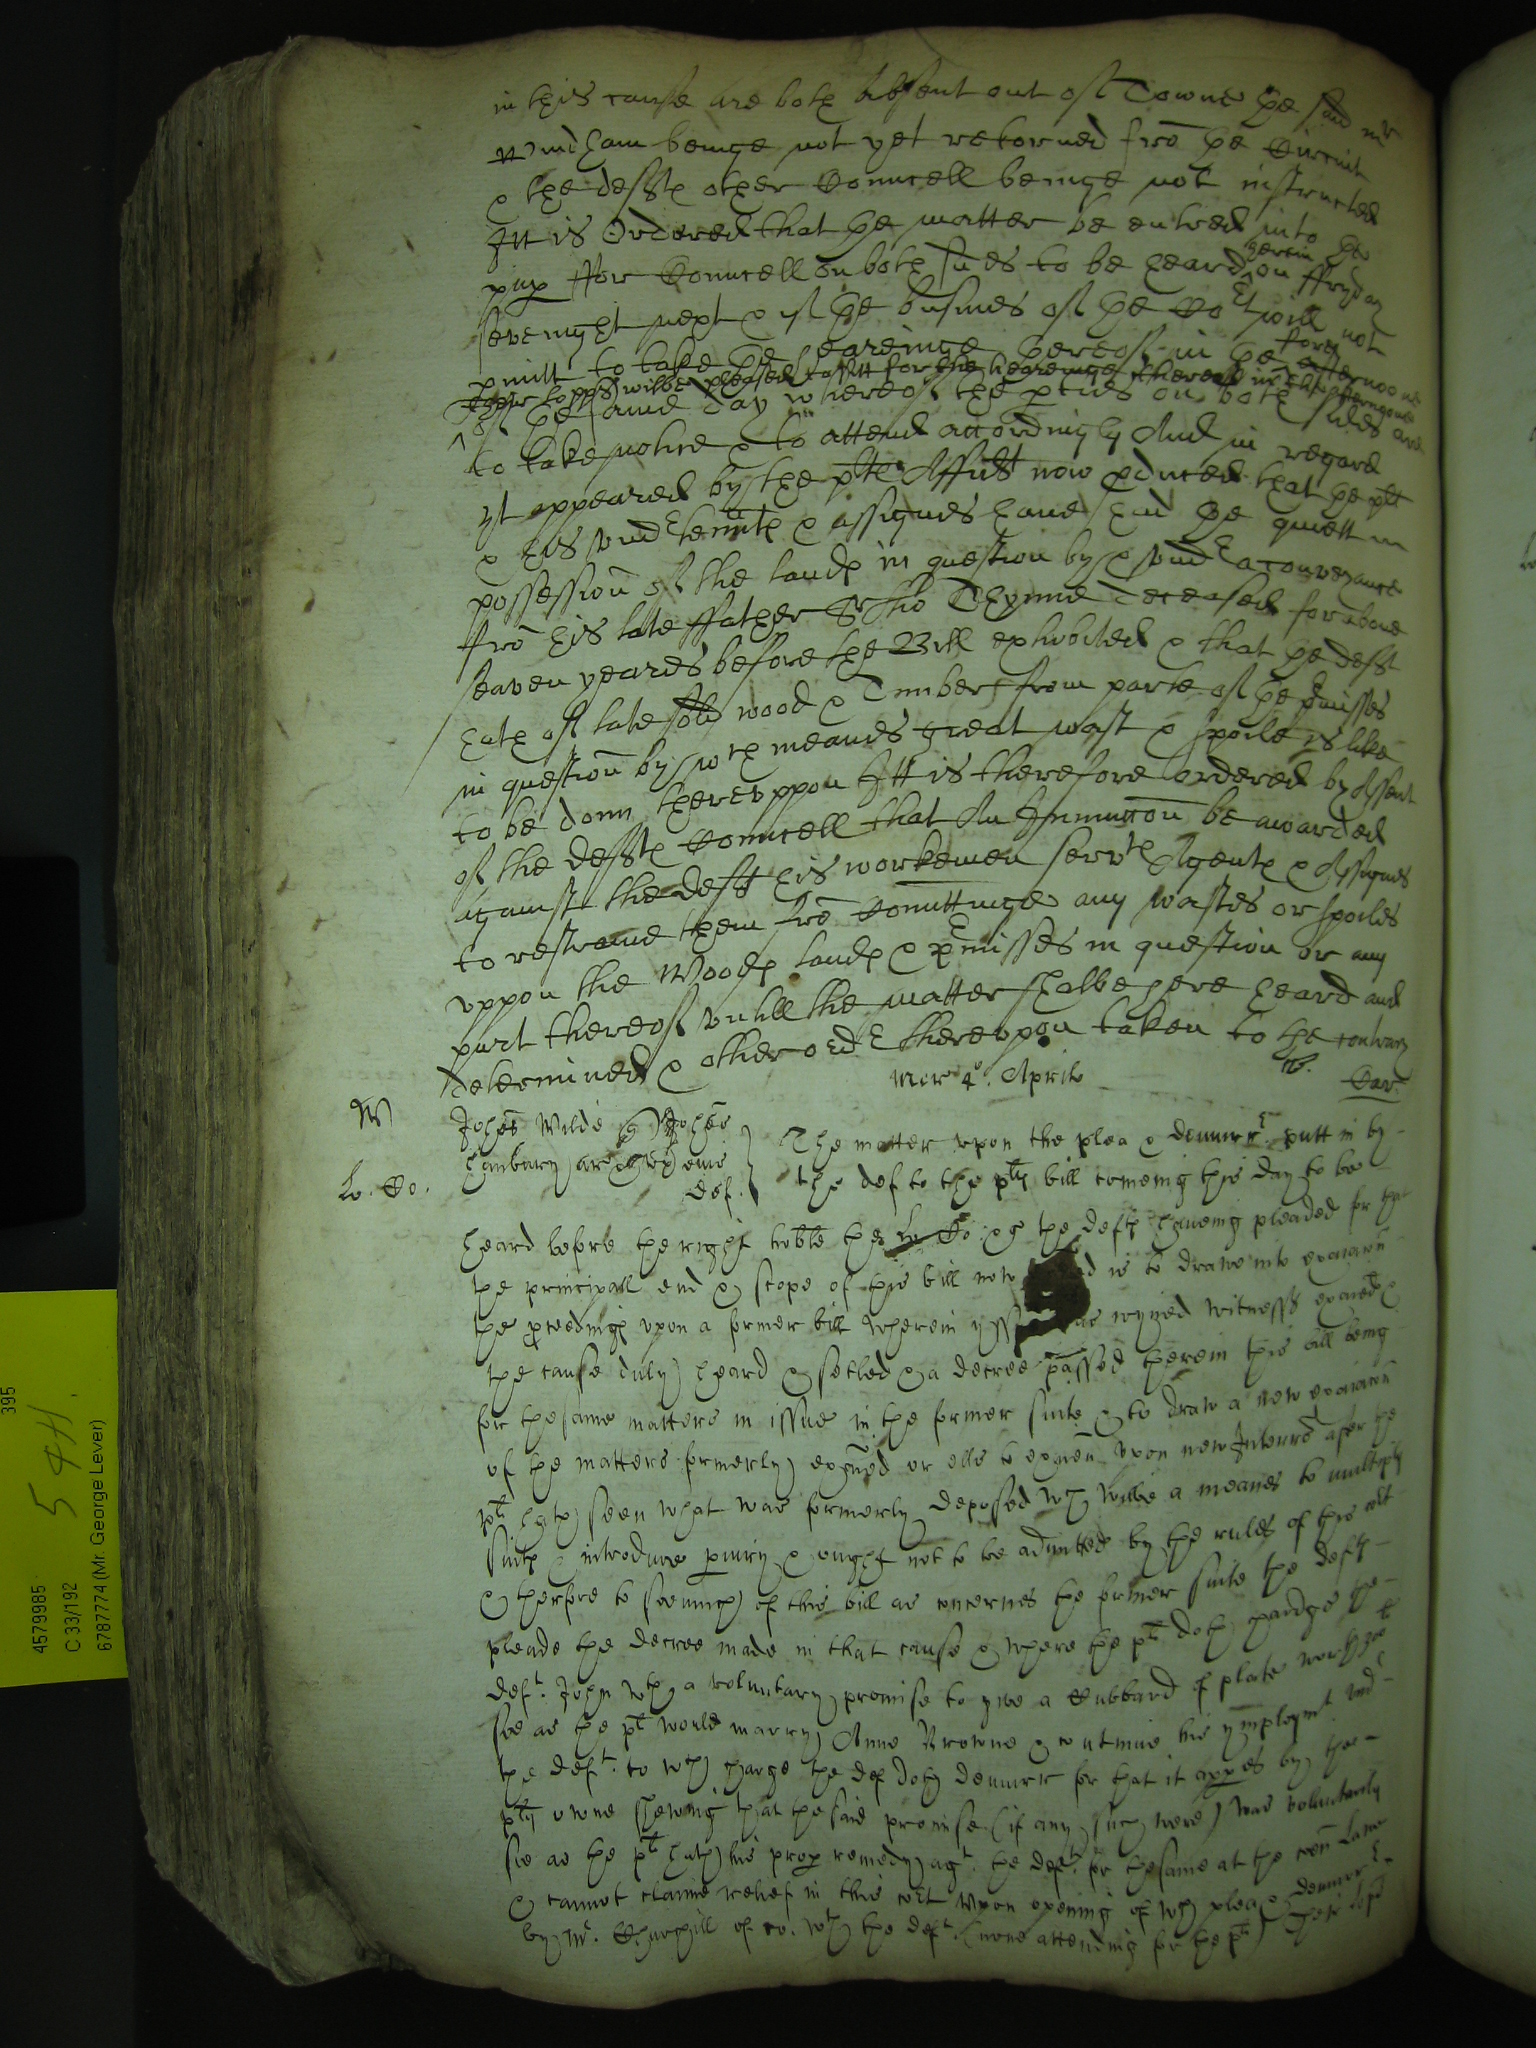 in this cause are both absent out of Towne the said mr
Windham beinge not yet retorned frō the Circuit
& the defftes other Councell beinge not instructed
Itt is Ordered that the matter be entred into the
pap ffor Councell on both sides to be heard herein on ffryday
sevenight next & if the busines of the Cort will not
pmitt to take the heareinge thereof in the forenoone
their lopps wilbe pleased to sitt for the heareinge thereof in the afternoone
of the same day whereof the pties on both sides are
to take notice & to attend accordingly And in regard
yt appeared by the pltes Affidt now pduced that the plt
& his undertennts & assignes have had the quiett
possession of the landes in question by & under a conveyance
frō his late ffather Sr Tho Thynne deceased for above
seaven yeares before the Bill exhibited & that the defft
hath of late sold wood & Timber from parte of the pmisses
in question by wch meanes great wast & spoile is like
to be donn thereuppon Itt is therefore ordered by Assent
of the defftes Councell that An Iniunccōn be awarded
against the defft his workemen servtes Agentes & Assignes
to restraine them frō Comittinge any wastes or spoiles
uppon the Woodes landes & premisses in question or any
part thereof untill the matter shalbe here heard and
determined & other order thereupon taken to the contrary
Mer 4o. Aprilis
W
Johes Wilde quer Johes
Hanbury ar
def.
The matter upon the plea & demurrer putt in by
Lo. Co.
the def to the pltes bill comeing this day to be
heard before the right hoble the Lo Co: & the deftes haveing pleaded for that
the principall end & scope of this bill now is to drawe into exaiacōn
the proceedinges upon a former bill wherein yssue was ioyned witnesses exaied &
the cause duly heard & setled & a decree passed therein this bill being
for the same matters in issue in the former suite & to draw a new exaiacōn
of the matters formerly exaied or elle to exaien upon new Interrs after the
plt hath seen what was formerly deposed wch wilbe a meanes to multiply
suites & introduce piury & ought not to be admitted by the rules of this cort
& therfore to soe much of this bill as concernes the former suite the deftes
pleade the decree made in that cause & where the plt doth chardge the
deft. John wth a voluntary promise to give a Cubbard of plate worth
soe as the plt would marry Anne Browne & continue his ymploymt. under
the deft. to wch charge the def doth demurr for that it appes by the
pltes owne shewing that the said promise (if any such were) was voluntarily
soe as the plt hath his proper remedy agt. the deft. for the same at the coēn lawe
& cannot claime relief in this cort Upon opening of wch plea & demurrer
by Mr. Churchill of co. wth the deft. (none attending for the plt) their lops
395
5 4H
4579985
C 33/192
6787774 (Mr. George Lever)